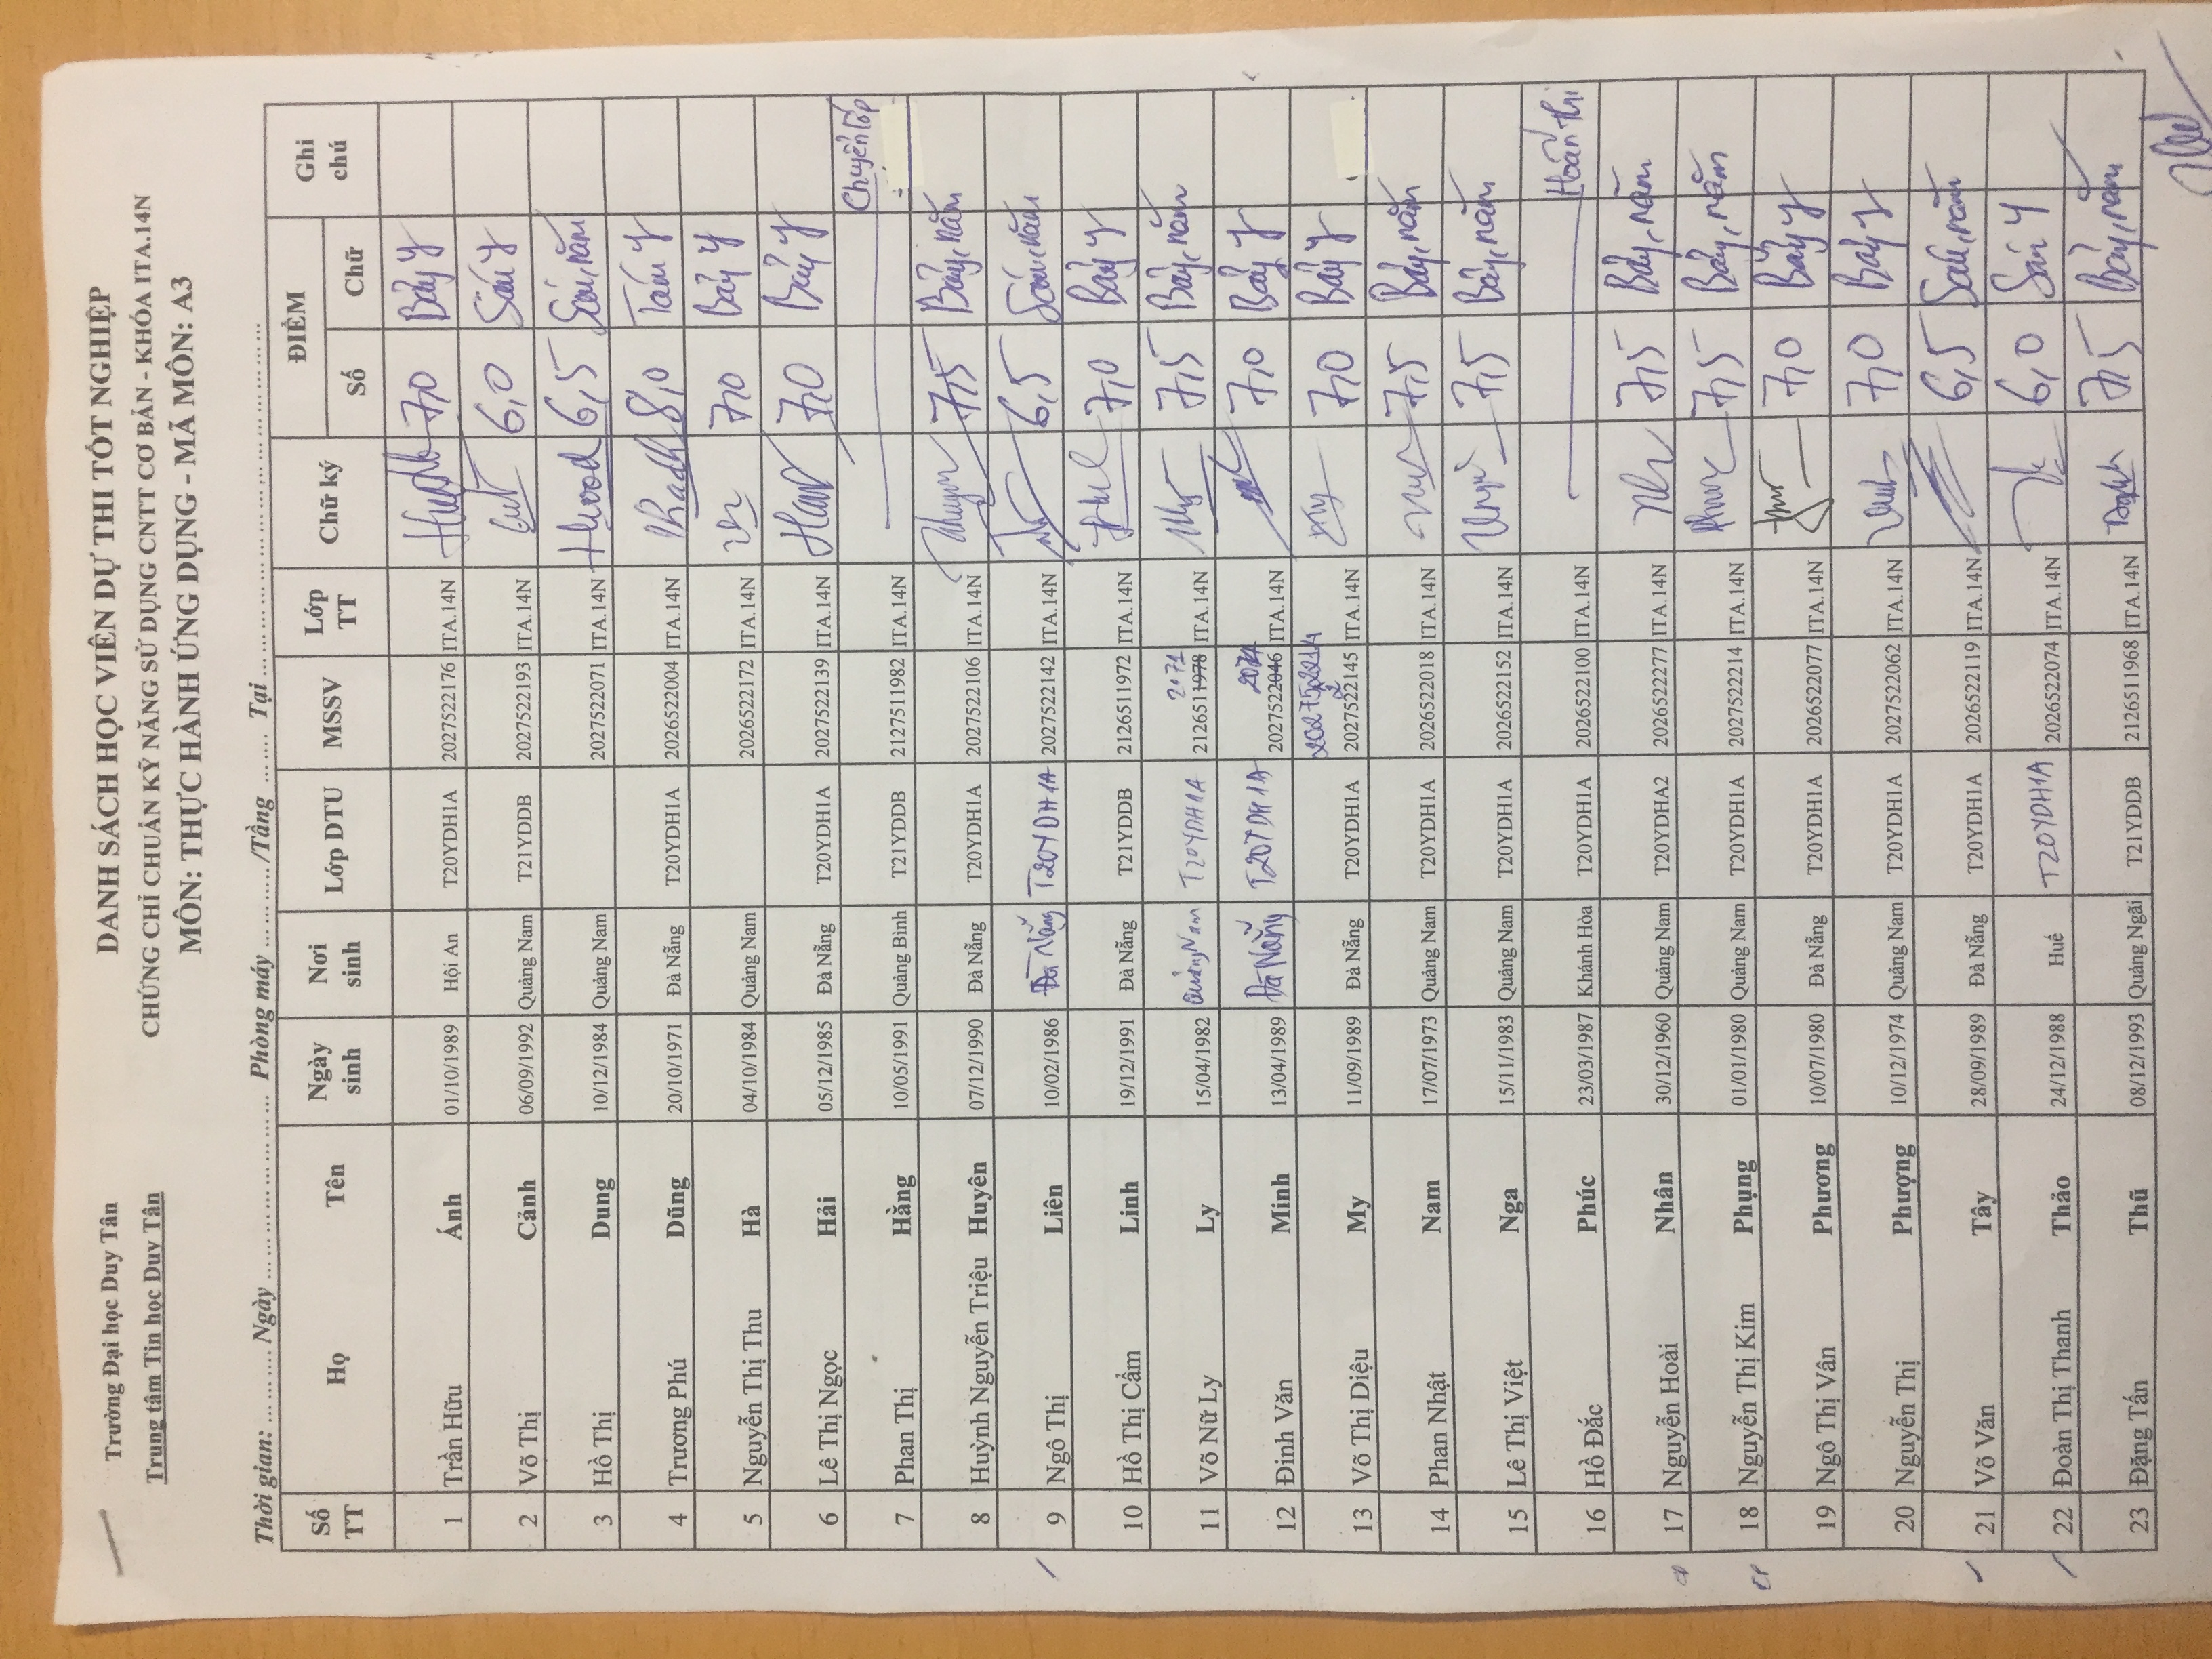 Trường Đại học Duy Tân
Trung tâm Tin học Duy Tân
DANH SÁCH HỌC VIÊN DỰ THI TỐT NGHIỆP
CHỨNG CHỈ CHUẨN KỸ NĂNG SỬ DỤNG CNTT CƠ BẢN - KHÓA ITA.14N
MÔN: THỰC HÀNH ỨNG DỤNG - MÃ MÔN: A3
Thời gian: ........... Ngày ........................... Phòng máy ............/Tầng ....... Tại ...........................
Số TT Họ Tên Ngày sinh Nơi sinh Lớp DTU MSSV Lớp TT Chữ ký ĐIỂM Số Chữ Ghi chú
1 Trần Hữu Ánh 01/10/1989 Hội An T20YDH1A 2027522176 ITA.14N 7,0 Bảy y
2 Võ Thị Cảnh 06/09/1992 Quảng Nam T21YDDB 2027522193 ITA.14N 6,0 Sáu y
3 Hồ Thị Dung 10/12/1984 Quảng Nam 2027522071 ITA.14N 6,5 Sáu, năm
4 Trương Phú Dũng 20/10/1971 Đà Nẵng T20YDH1A 2026522004 ITA.14N 8,0 Tám y
5 Nguyễn Thị Thu Hà 04/10/1984 Quảng Nam 2026522172 ITA.14N 7,0 Bảy y
6 Lê Thị Ngọc Hải 05/12/1985 Đà Nẵng T20YDH1A 2027522139 ITA.14N 7,0 Bảy y
7 Phan Thị Hằng 10/05/1991 Quảng Bình T21YDDB 2127511982 ITA.14N Chuyển lớp
8 Huỳnh Nguyễn Triệu Huyên 07/12/1990 Đà Nẵng T20YDH1A 2027522106 ITA.14N 7,5 Bảy, năm
9 Ngô Thị Liên 10/02/1986 Đà Nẵng T20YDH1A 2027522142 ITA.14N 6,5 Sáu, năm
10 Hồ Thị Cẩm Linh 19/12/1991 Đà Nẵng T21YDDB 2126511972 ITA.14N 7,0 Bảy y
11 Võ Nữ Ly Ly 15/04/1982 Quảng Nam T20YDH1A 2126511978 2071 ITA.14N 7,5 Bảy, năm
12 Đinh Văn Minh 13/04/1989 Đà Nẵng T20YDH1A 2027522046 ITA.14N 7,0 Bảy y
13 Võ Thị Diệu My 11/09/1989 Đà Nẵng T20YDH1A 2027522145 ITA.14N 7,0 Bảy y
14 Phan Nhật Nam 17/07/1973 Quảng Nam T20YDH1A 2026522018 ITA.14N 7,5 Bảy, năm
15 Lê Thị Việt Nga 15/11/1983 Quảng Nam T20YDH1A 2026522152 ITA.14N 7,5 Bảy, năm
16 Hồ Đắc Phúc 23/03/1987 Khánh Hòa T20YDH1A 2026522100 ITA.14N Hoãn thi
17 Nguyễn Hoài Nhân 30/12/1960 Quảng Nam T20YDHA2 2026522277 ITA.14N 7,5 Bảy, năm
18 Nguyễn Thị Kim Phụng 01/01/1980 Quảng Nam T20YDH1A 2027522214 ITA.14N 7,5 Bảy, năm
19 Ngô Thị Vân Phương 10/07/1980 Đà Nẵng T20YDH1A 2026522077 ITA.14N 7,0 Bảy y
20 Nguyễn Thị Phượng 10/12/1974 Quảng Nam T20YDH1A 2027522062 ITA.14N 7,0 Bảy y
21 Võ Văn Tây 28/09/1989 Đà Nẵng T20YDH1A 2026522119 ITA.14N 6,5 Sáu, năm
22 Đoàn Thị Thanh Thảo 24/12/1988 Huế T20YDH1A 2026522074 ITA.14N 6,0 Sáu y
23 Đặng Tấn Thũ 08/12/1993 Quảng Ngãi T21YDDB 2126511968 ITA.14N 7,5 Bảy, năm